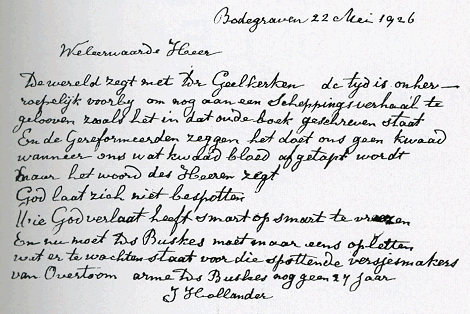 Bodegraven 22 Mei 1926
Weleerwaarde Heer
De wereld zegt met Dr Geelkerken de tyd is onher-
roepelijk voorby om nog aan een Scheppingsverhaal te
gelooven zooals het in dat oude boek geschreven staat
En de Gereformeerden zeggen het doet ons geen kwaad
wanneer ons wat kwaad bloed afgetapt wordt
maar het woord des Heeren zegt
God laat zich niet bespotten
Wie God verlaat heeft smart op smart te vreezen
En nu moet Ds Buskes moet maar eens opletten
wat er te wachten staat voor die spottende versjesmakers
van Overtoom arme Ds Buskes nog geen 27 jaar
J Hollander